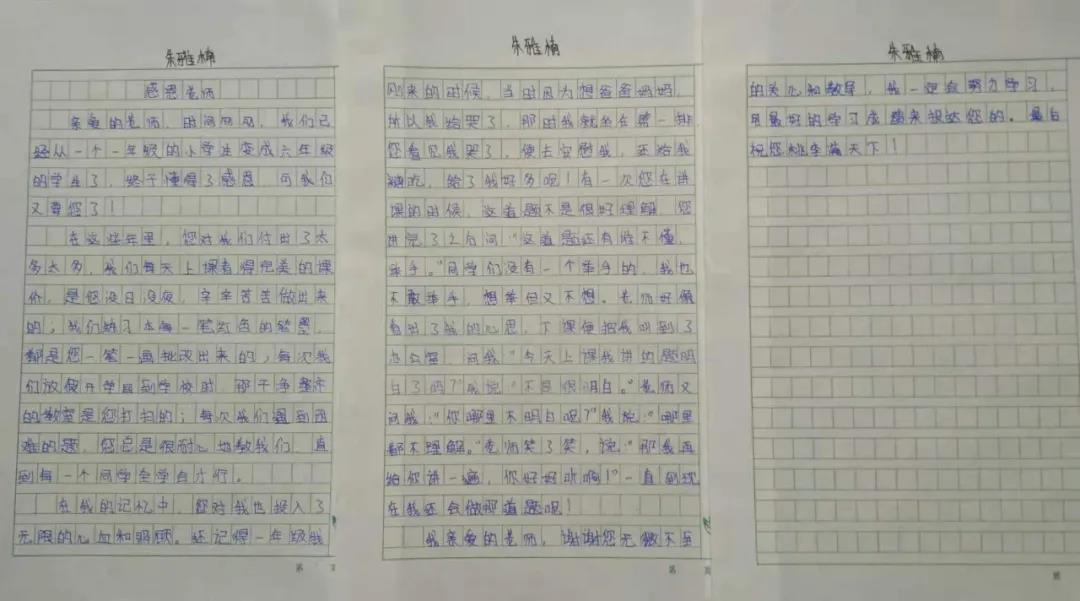 朱雅楠
感恩老师
亲爱的老师，时间网网，我们已
经从一个一年级的小学生变成六年级
的学生了，终于懂得了感恩，可我们
又要您了！
在这些年里，您对我们付出了太
多太多，我们每天上课看得完美的课
价，是您没日没夜，辛辛苦苦做出来
的；我们练习本每一笔红色的笔墨，
都是您一笔一画批改出来的；每次我
们放假开学回到学校时，那干净整齐
的教室是您打扫的；每次我们遇到困
难的题，您总是很耐心地教我们，直
到每一个同学全学会才行。
在我的记忆中，您对我也投入了
无限的心血和照顾。还记得一年级我
朱雅楠
刚来的时候，当时因为想爸爸妈妈，
所以我给哭了，那时我就坐在第一排，
您看见我哭了，便去安慰我，还给我
糖吃，给了我好多呢！有一次您在讲
课的时候，这道题不是很好理解，您
讲完了之后问：“这道题还有谁不懂，
举手。”同学们没有一个举手的，我也
不敢举手，想举但又不想。老师好像
看出了我的心思，下课便把我叫到了
办公室，问我：“今天上课我讲的题明
白了吗？”我说：“不是很明白。”老师又
问我：“你哪里不明白呢？”我说：“哪里
都不理解。”老师笑了笑，说：“那我再
给你讲一遍，你好好听啊！”一直到现
在我还会做那道题呢！
我亲爱的老师，谢谢您无微不至
朱雅楠
的关心和教导，我一定会努力学习，
用最好的学习成绩来报达您的。最后
祝您桃李满天下！
第 页
第 页
第